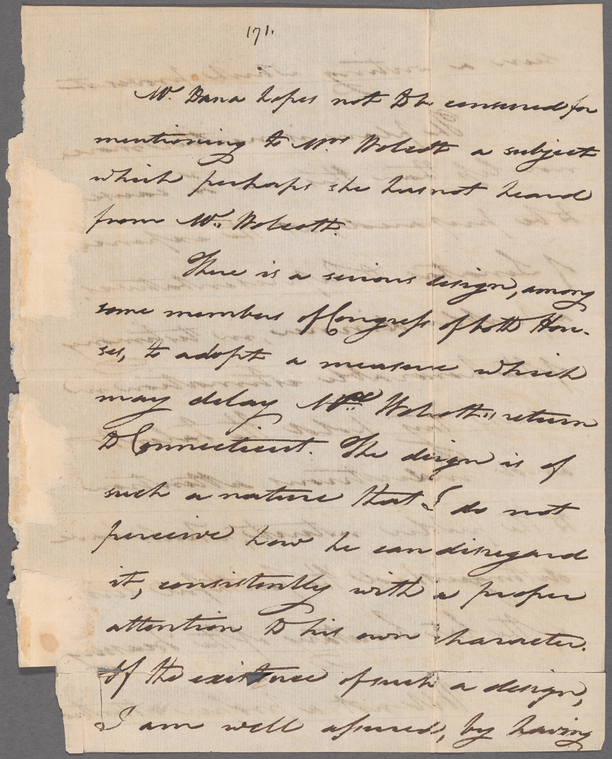 171.
Mr. Dana hopes not to be censured for
mentioning to Mrs Wolcott a subject
which perhaps she has not heard
from Mr. Wolcott.
There is a serious design, among
some members of Congress of both Hou-
ses, to adopt a measure which
may delay Wolcott's return
to Connecticut. The design is of
such a nature that I do not
perceive how he can disregard
it, consistently with a proper
attention to his own character.
Of the existence of such a design,
I am well assured, by having